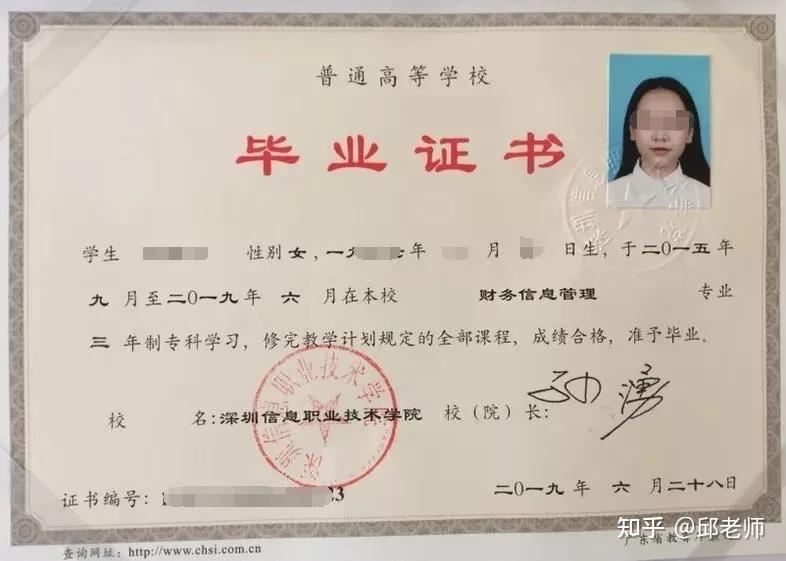 普通高等学校
毕业证书
学生 性别 女，一九 七年 月 日生，于二〇一五年
九 月至二〇一九年 六 月在本校 财务信息管理 专业
三 年制专科学习，修完教学计划规定的全部课程，成绩合格，准予毕业。
深圳信息职业技术学院
校 名：深圳信息职业技术学院 校（院）长：
证书编号： 33 二〇一九年 六 月二十八日
查询网址：http://www.chsi.com.cn 广东省教育厅
知乎 @邱老师